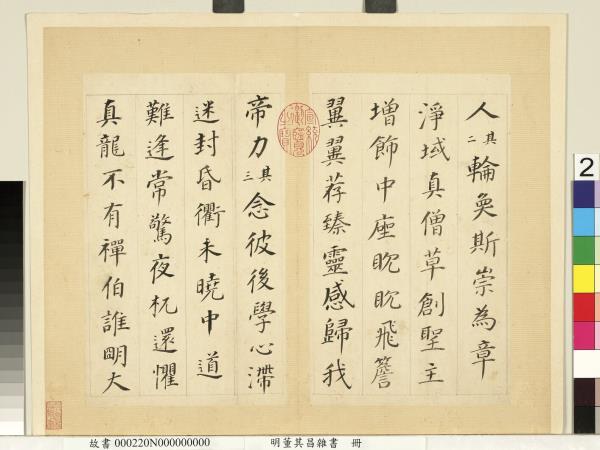 人其二輪奐斯崇為章
淨域真僧草創聖主
增飾中座眈眈飛簷
翼翼荐臻靈感歸我
宣統御覽之寶
帝力其三念彼後學心滯
迷封昏衢未曉中道
難逢常驚夜杌還懼
真龍不有禪伯誰明大
2
故書 000220N000000000 明董其昌雜書 冊